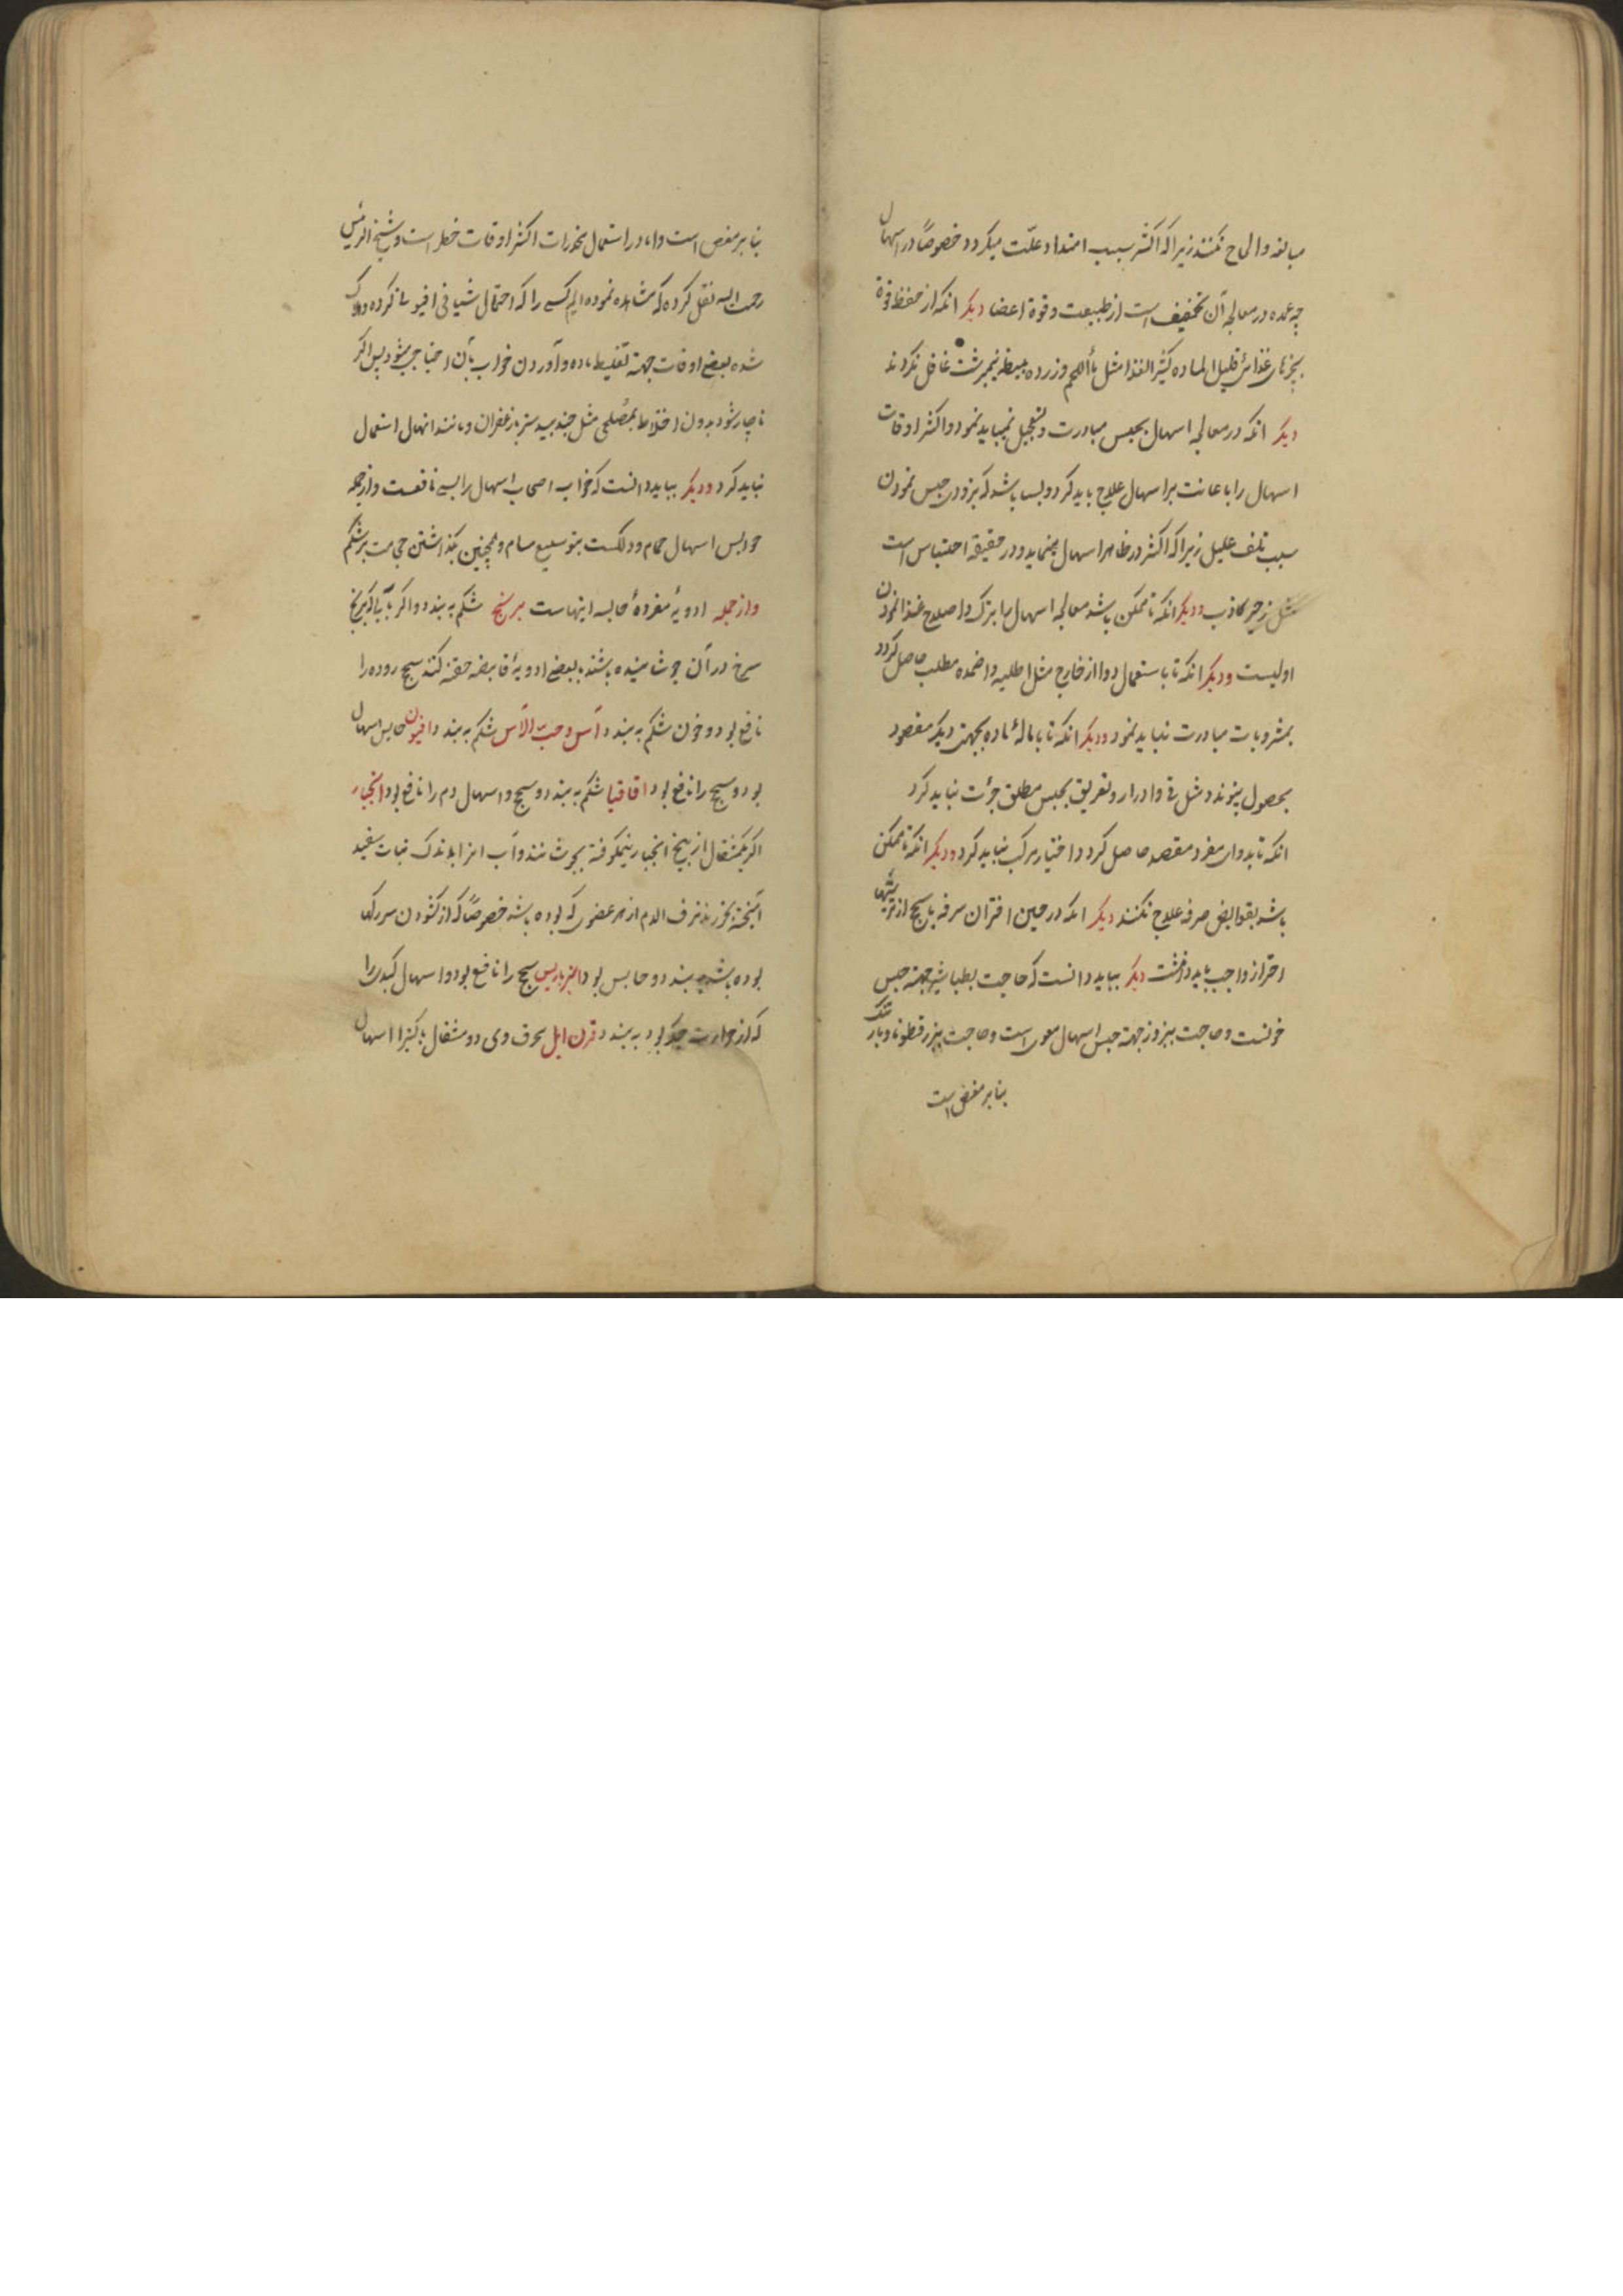 مبالغه و الحاح نکنند زیرا که اکثر سبب امتداد علّت میکردد خصوصاً در اسهال
چه عمده در معالجه آن تخفیف است از طبیعت و قوة اعضا دیکر انکه از حفظ قوة
بچیزهای غذائی قلیل الماده کثیر الغذا مثل ماٴاللحم و زرده بیضه نیمبرشت غافل نکردند
دیکر انکه در معالجه اسهال بحبس مبادرت و تعجیل نمیباید نمود و اکثر اوقات
اسهال را باعانت بر اسهال علاج باید کرد و بسا باشد که بزودی حبس نمودن
سبب تلف علیل زیرا که اکثر در ظاهر اسهال مینماید و در حقیقة احتباس است
مثل زحیر کاذب و دیکر انکه تا ممکن باشد معالجه اسهال را بترک و اصلاح غذا نمودن
اولیست و دیکر انکه تا باستعمال دوا از خارج مثل اطلیه و اضمده مطلب حاصل کردد
بمشروبات مبادرت نباید نمود و دیکر انکه تا باماله ماده بجهتی دیکر مقصود
بحصول پیوندد مثل قی و ادرار و تعریق بحبس مطلق جرٲت نباید کرد
انکه تا بدوای مفرد مقصد حاصل کردد اختیار مرکب نباید کرد و دیکر انکه تا ممکن
باشد بقوابض صرفه علاج نکنند دیکر انکه در حین اقتران سرفه با سحج از ترشیها
احتراز واجب باید داشت دیکر بباید دانست که حاجت بطباشیر جهته حبس
خونست و حاجت ببزور جهته حبس اسهال معوی است و حاجت ببزر قطونا و بارتنک
بنابر مغص است
بنابر مغص است و اما در استعمال مخدرات اکثر اوقات خطر است و شیخ الرئیس
رحمه الله نقل کرده که مشاهده نموده ایم کسی را که احتمال شیافی افیونی کرده و هلاک
شده بعضی اوقات جهته تغلیظ ماده و آوردن خواب بآن احتیاج میشود پس اکر
ناچار شود بدون اختلاط بمصلحی مثل جندبیدستر یا زعفران و مانند انها استعمال
نباید کرد و دیکر بباید دانست که خواب اصحاب اسهال را بسی نافعست و از جمله
حوابس اسهال حمام و دلکست بتوسیع مسام و همچنین کذاشتن حجامت بر شکم
و از جمله ادویهٔ مفردهٔ حابسه اینهاست برنج شکم به بندد و اکر بآبی که برنج
سرخ در آن جوشانیده باشند با بعضی ادویهٔ قابضه حقنه کنند سحج روده را
نافع بود و خون شکم به بندد آس و حب الآس شکم به بندد افیون حابس اسهال
بود و سحج را نافع بود اقاقیا شکم به بندد و سحج و اسهال دم را نافع بود انجبار
اکر یکمثقال از بیخ انجبار نیمکوفته بجوشانند و آب انرا باندک نبات سفید
آمیخته بخورند نزف الدم از هر عضوی که بوده باشد خصوصاً که از کشودن سر رکها
بوده باشد ببندد و حابس بود انبرباریس سحج را نافع بود و اسهال کبدی را
که از حرارت جکر بود به بندد قرن ایل محرق وی دو مثقال با کتیرا اسهال